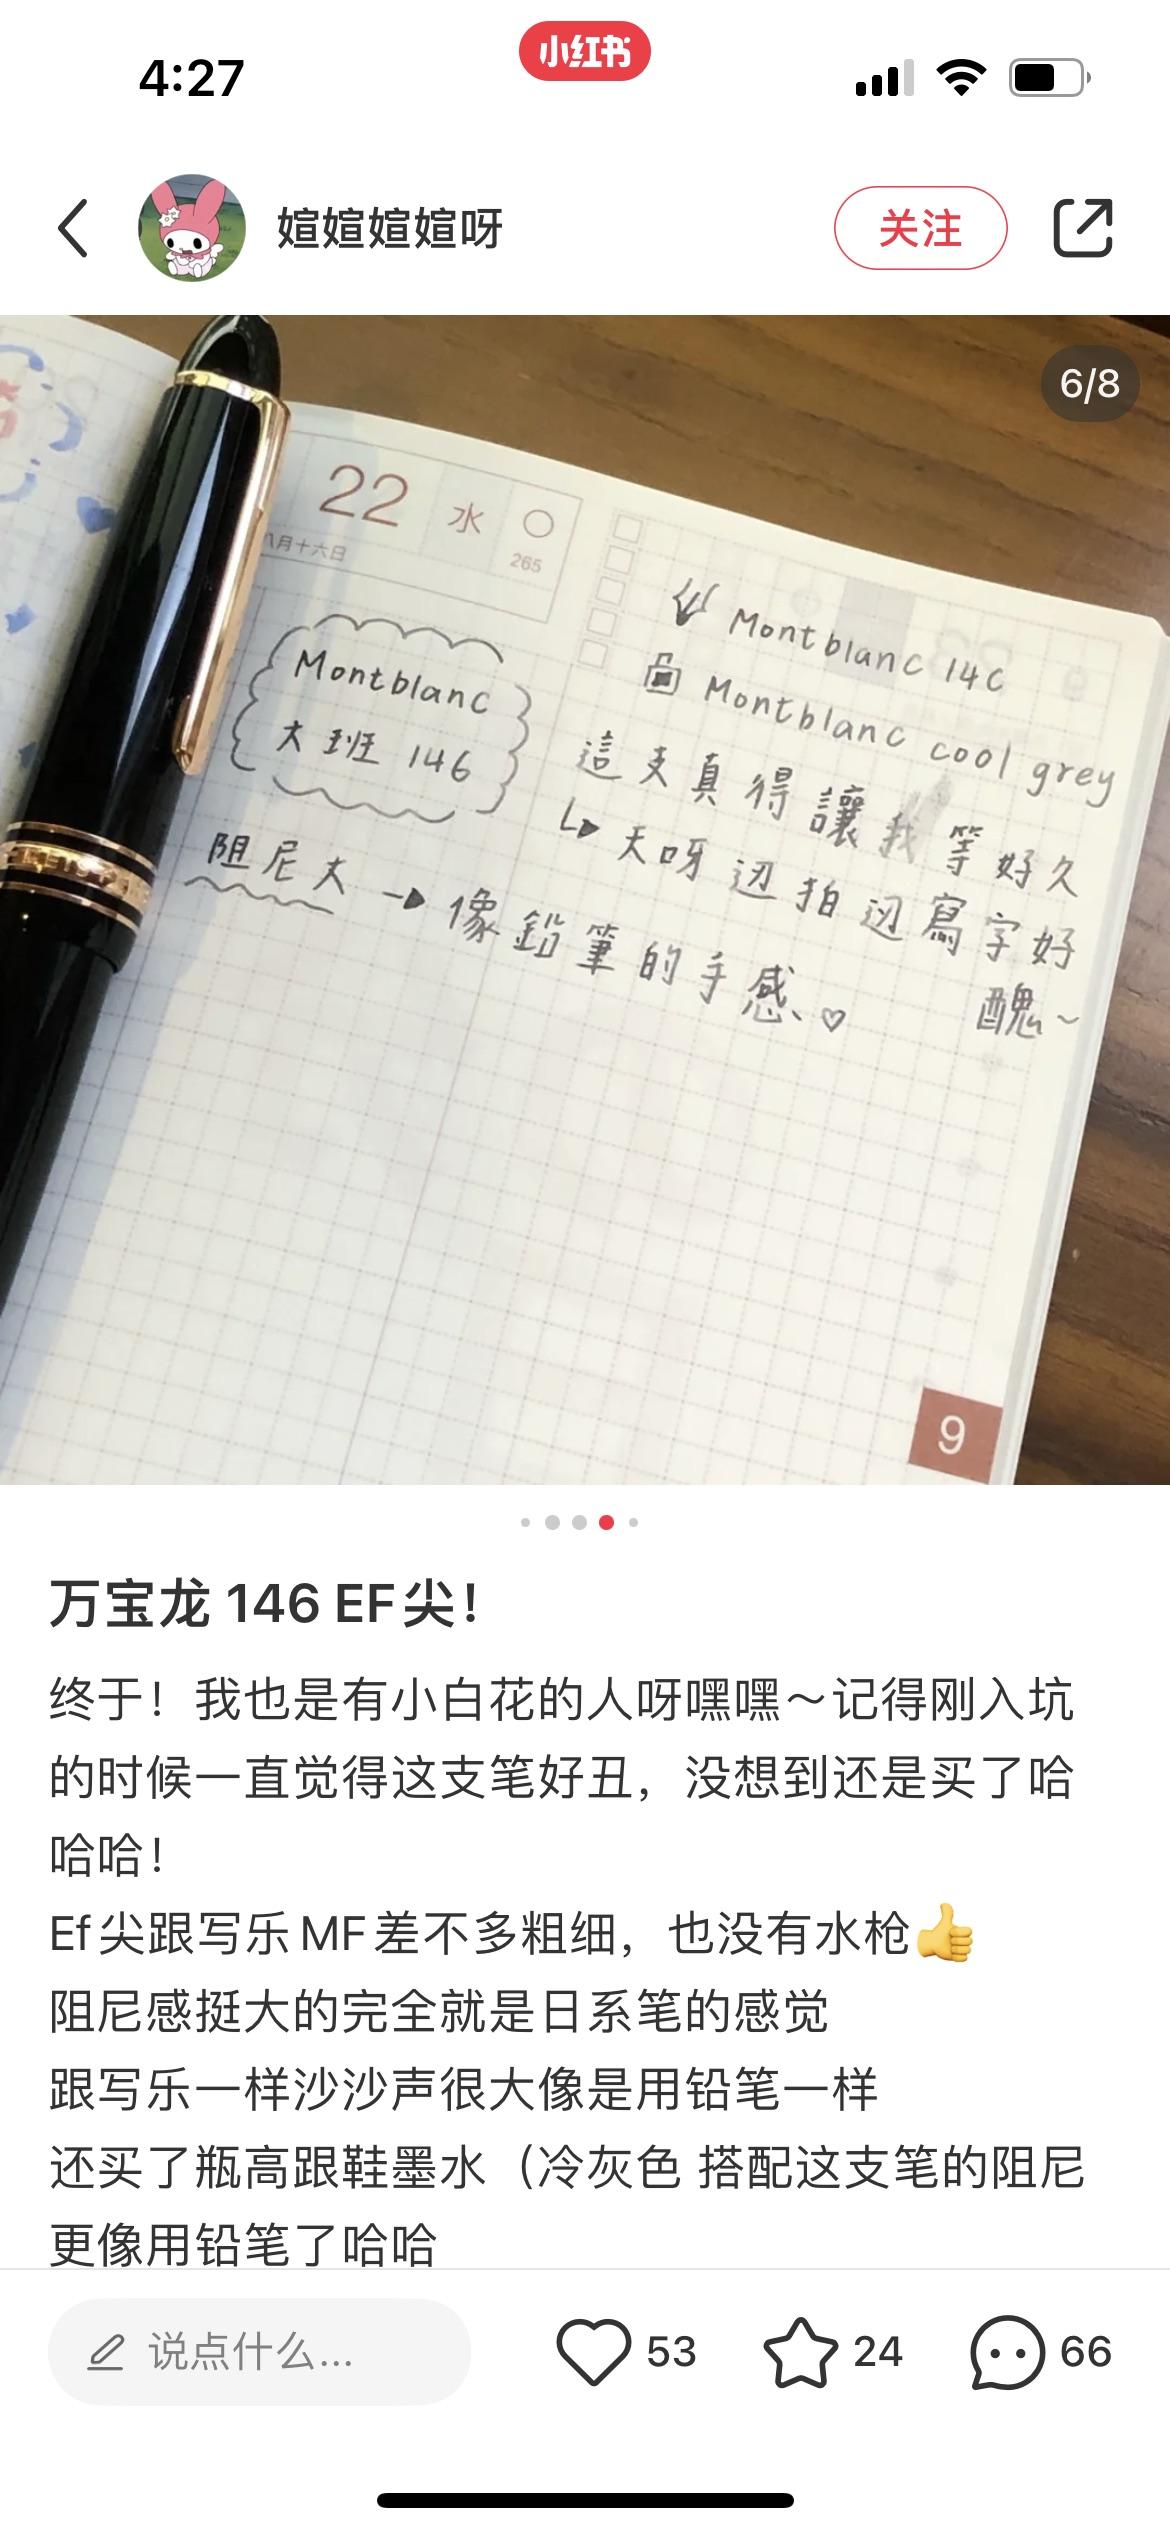 4:27
小红书
媗媗媗媗呀
关注
6/8
22 水 ○
八月十六日
265
Montblanc
大班 146
Montblanc 14C
Montblanc cool grey
這支真得讓我等好久
天呀 边拍边寫字好
醜~
阻尼大 → 像鉛筆的手感、♡
9
万宝龙 146 EF尖！
终于！我也是有小白花的人呀嘿嘿～记得刚入坑
的时候一直觉得这支笔好丑，没想到还是买了哈
哈哈！
Ef尖跟写乐MF差不多粗细，也没有水枪👍
阻尼感挺大的完全就是日系笔的感觉
跟写乐一样沙沙声很大像是用铅笔一样
还买了瓶高跟鞋墨水（冷灰色 搭配这支笔的阻尼
更像用铅笔了哈哈
说点什么...
53
24
66